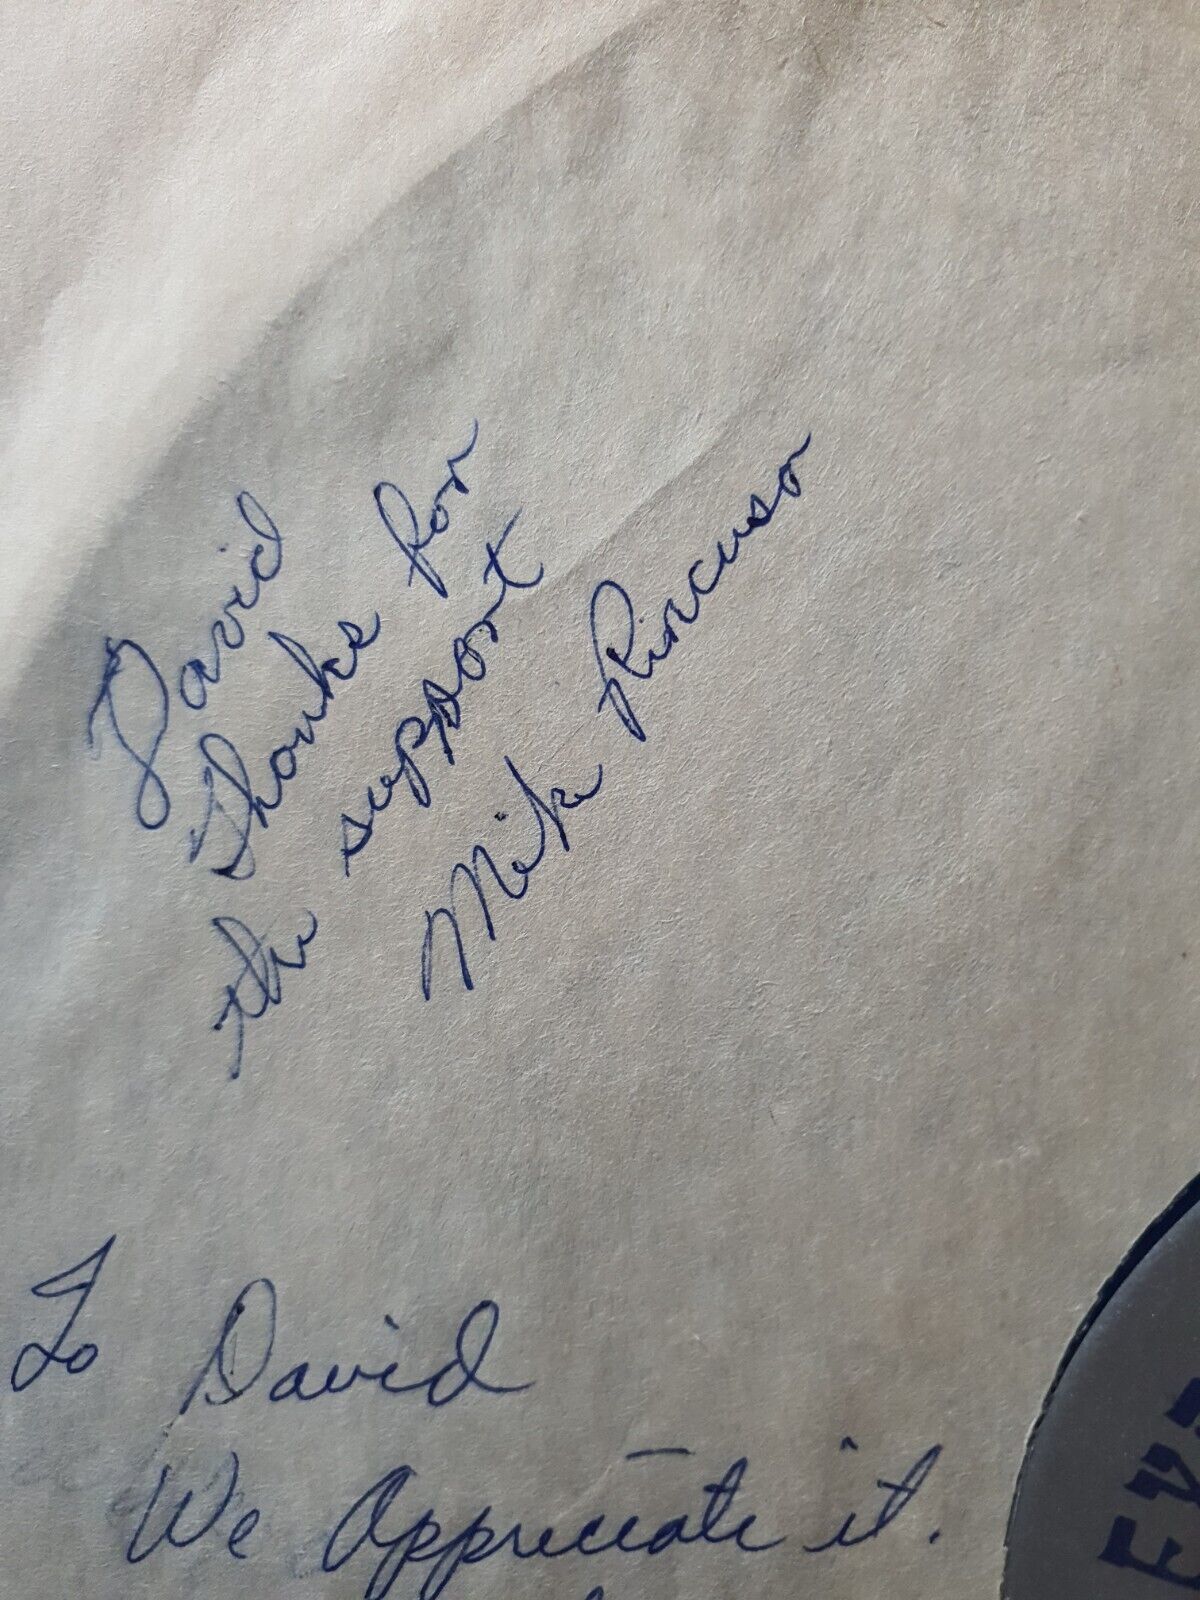 David
Thanks for
the support
Mike Pincuso
To David
We Appreciate it.